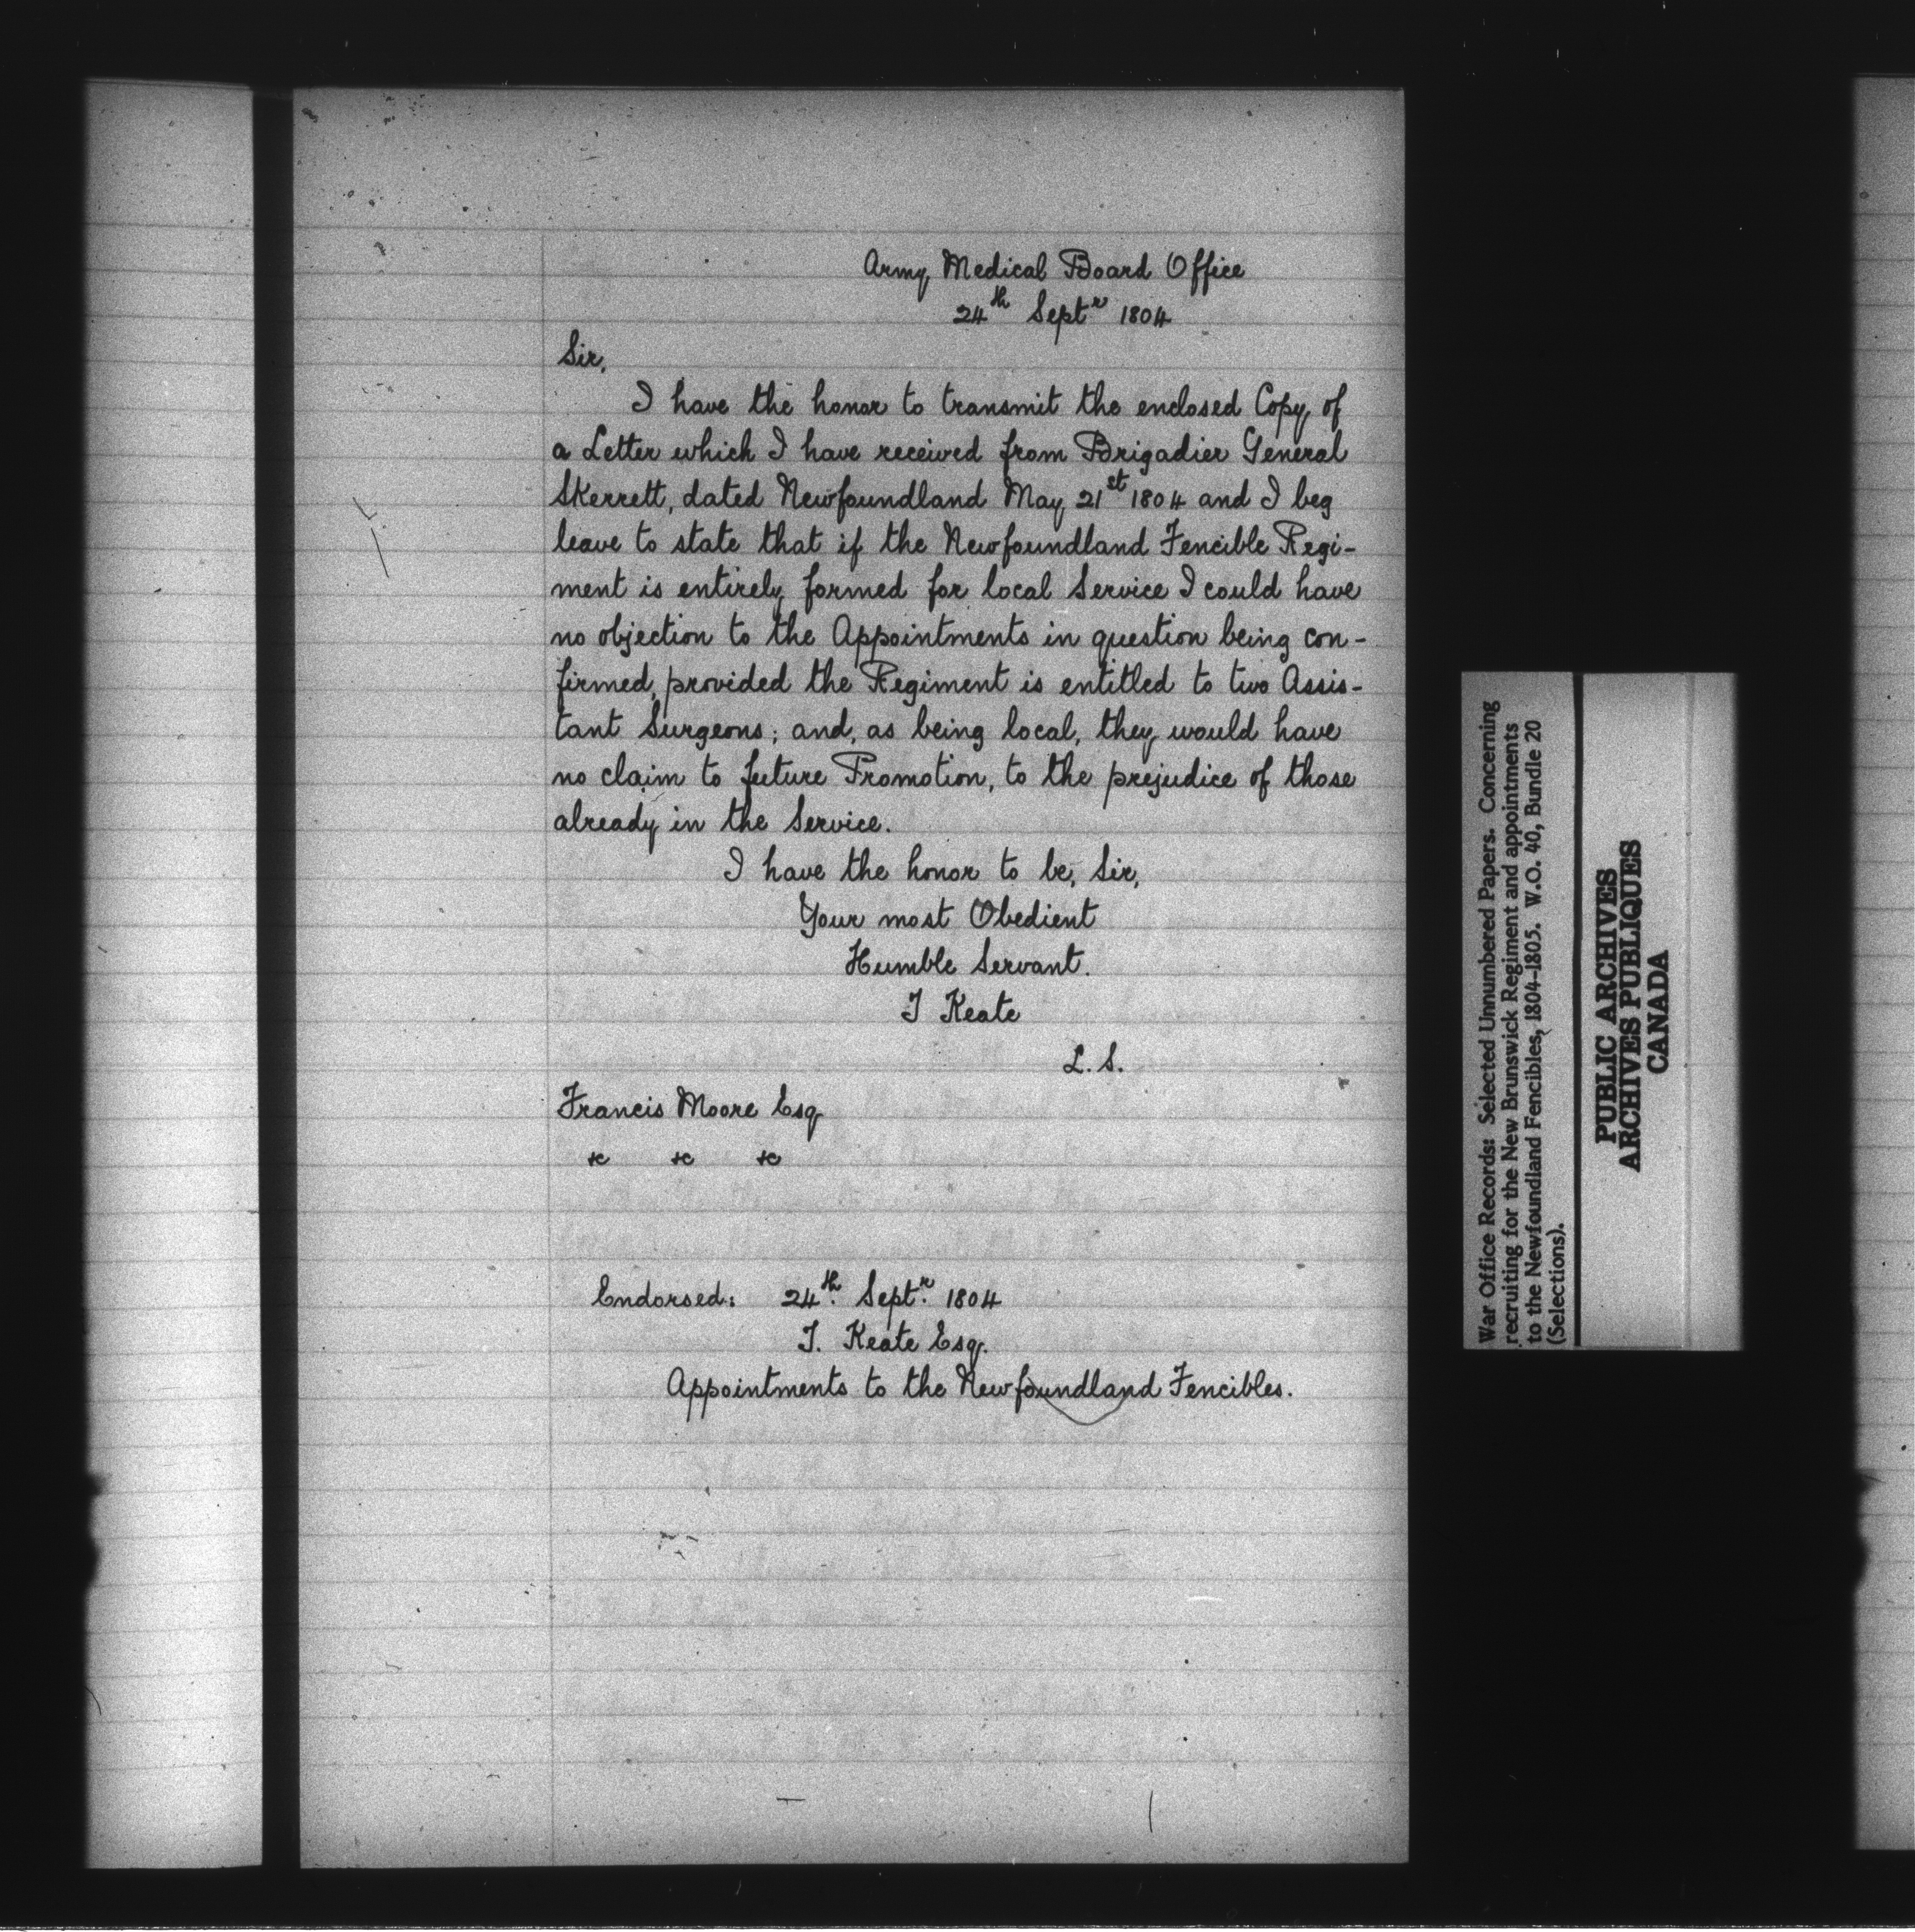 Army Medical Board Office
24th Septr 1804
Sir,
I have the honor to transmit the enclosed Copy of
a Letter which I have received from Brigadier General
Skerrett, dated Newfoundland May 21st 1804 and I beg
leave to state that if the Newfoundland Fencible Regi-
ment is entirely formed for local Service I could have
no objection to the Appointments in question being con-
firmed, provided the Regiment is entitled to two Assis-
tant Surgeons; and, as being local, they would have
no claim to future Promotion, to the prejudice of those
already in the Service.
I have the honor to be, Sir,
Your most Obedient
Humble Servant.
T Keate
L. S.
Francis Moore Esq
&c &c &c
Endorsed: 24th. Septr. 1804
T. Keate Esq.
Appointments to the Newfoundland Fencibles.
War Office Records: Selected Unnumbered Papers. Concerning
recruiting for the New Brunswick Regiment and appointments
to the Newfoundland Fencibles, 1804-1805. W.O. 40, Bundle 20
(Selections).
PUBLIC ARCHIVES
ARCHIVES PUBLIQUES
CANADA